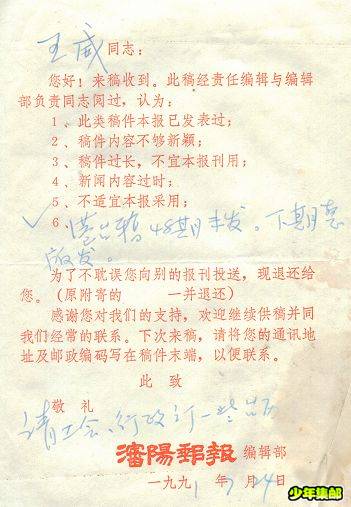 王威同志：
您好！来稿收到。此稿经责任编辑与编辑
部负责同志阅过，认为：
1、此类稿件本报已发表过；
2、稿件内容不够新颖；
3、稿件过长，不宜本报刊用；
4、新闻内容过时；
5、不适宜本报采用；
6、稿48期未发。下期
发。
为了不耽误您向别的报刊投送，现退还给
您。（原附寄的 一并退还）
感谢您对我们的支持，欢迎继续供稿并同
我们经常的联系。下次来稿，请将您的通讯地
址及邮政编码写在稿件末端，以便联系。
此 致
敬 礼
请工会、行政订一些
瀋陽郵報 编辑部
一九九1年 月24日
少年集邮